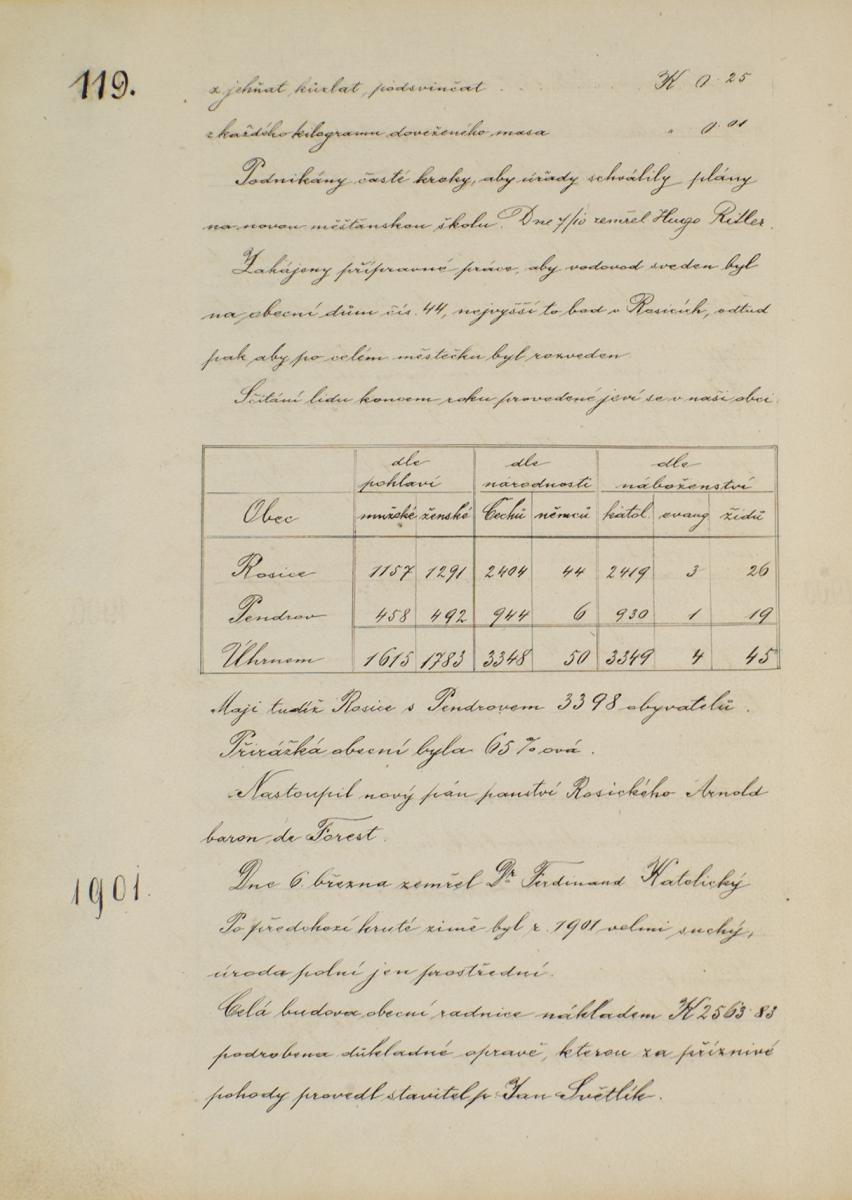 119.
z jehňat, kůzlat, podsvinčat . . . . . K 0·25
z každého kilogramu dovezeného masa „ 0·01
Podnikány časté kroky, aby úřady schválily plány
na novou měšťanskou školu. Dne 7/10 zemřel Hugo Ritler.
Zahájeny přípravné práce, aby vodovod sveden byl
na obecní dům čís. 44, nejvyšší to bod v Rosicích, odtud
pak aby po celém městečku byl rozveden.
Sčítání lidu koncem roku provedené jeví se v naší obci:
dle dle dle
pohlaví národnosti náboženství
Obec mužské ženské Čechů němců katol. evang. židů
Rosice 1157 1291 2404 44 2419 3 26
Pendrov 458 492 944 6 930 1 19
Úhrnem 1615 1783 3348 50 3349 4 45
Mají tudíž Rosice s Pendrovem 3398 obyvatelů.
Přirážká obecní byla 65%ová.
Nastoupil nový pán panství Rosického Arnold
baron de Forest.
1901.
Dne 6. března zemřel Dr. Ferdinand Katolický
Po předchozí kruté zimě byl r. 1901 velmi suchý,
úroda polní jen prostřední.
Celá budova obecní radnice nákladem K 2563·83
podrobena důkladné opravě, kterou za příznivé
pohody provedl stavitel p. Jan Světlík.